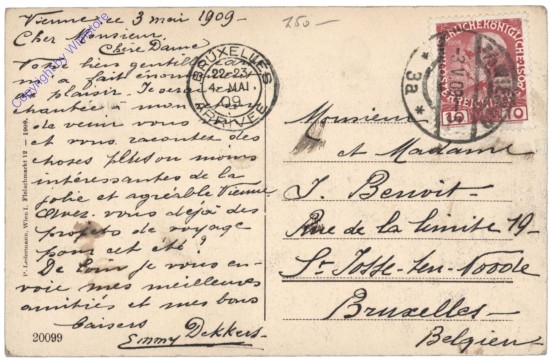 Vienne, ce 3 mai 1909.-
Cher Monsieur,
Chère Dame
Votre bien gentille carte
m'a fait énormément
plaisir. Je serai
enchantée à mon tour
de venir vous
et vous racontez des
choses plus ou moins
intéressantes de la
jolie et agréable Vienne
Avez-vous déjà des
projets de voyage
pour cet été?
De loin je vous en-
voie mes meilleures
amitiés et mes bons
baisers
Emmy Dekkers.-
20099
P. Ledermann, Wien I. Fleischmarkt 12 — 1909.
Copyright by Wildstore
250-
BRUXELLES
22-23
4 MAI
09
ARRIVEE
* 3a *
3.V.09
KAISERLICHEKÖNIGLICHE
10
Monsieur
et Madame
J. Benoit-
Rue de la limite 19-
St Josse-ten-Noode
Bruxelles-
Belgien